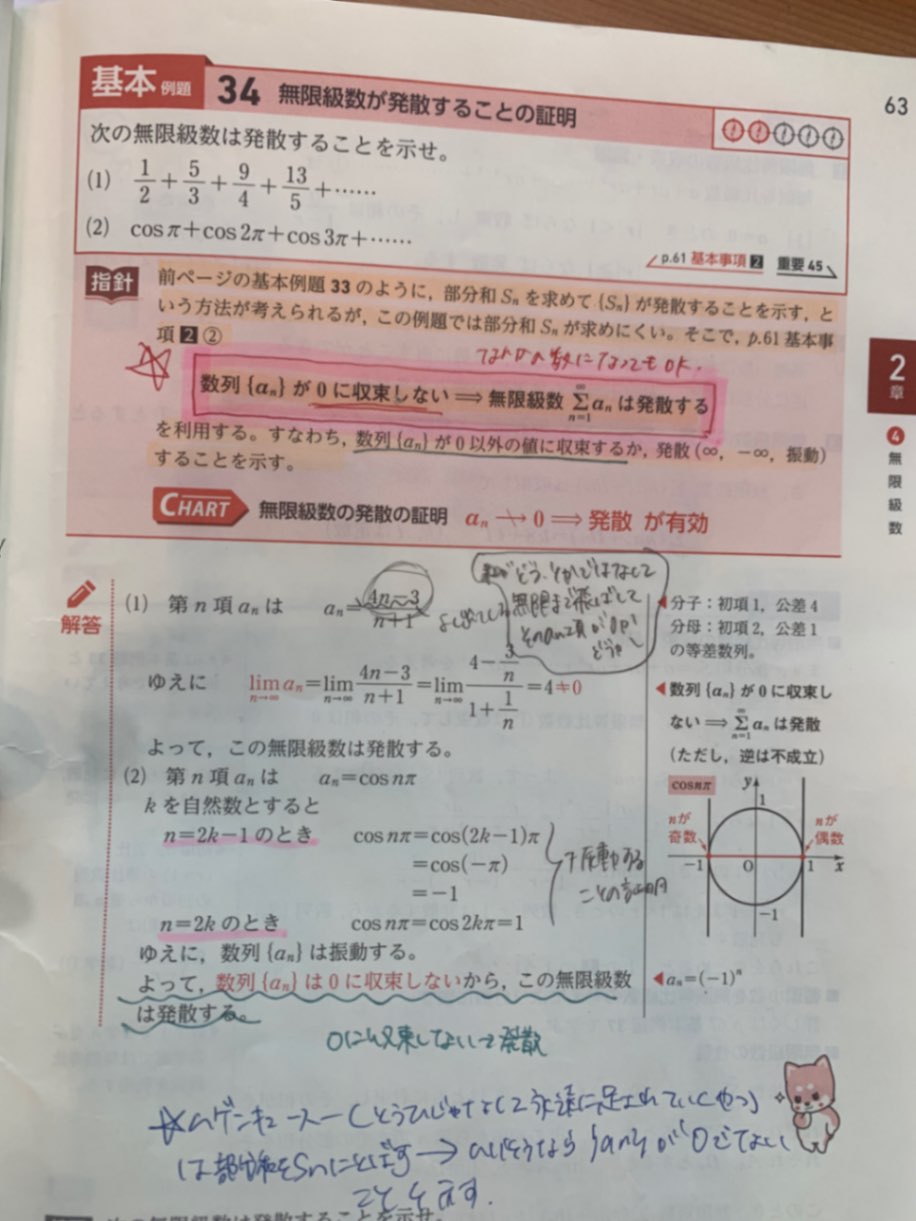 基本 例題 34 無限級数が発散することの証明
63
次の無限級数は発散することを示せ。
(1) 1/2 + 5/3 + 9/4 + 13/5 + ……
(2) cosπ+cos2π+cos3π+……
p.61 基本事項 2 重要 45
指針 前ページの基本例題 33 のように，部分和 Sₙ を求めて {Sₙ} が発散することを示す，と
いう方法が考えられるが，この例題では部分和 Sₙ が求めにくい。そこで，p.61 基本事
項 2 ②
数になってもOK.
数列 {aₙ} が 0 に収束しない ⟹ 無限級数 ∑[n=1→∞] aₙ は発散する
を利用する。すなわち，数列 {aₙ} が 0 以外の値に収束するか，発散（∞，−∞，振動）
することを示す。
CHART 無限級数の発散の証明 aₙ ↛ 0 ⟹ 発散 が有効
2章
4 無限級数
解答
(1) 第 n 項 aₙ は aₙ = (4n−3)/(n+1)
無限まで飛ばして
◀ 分子：初項 1，公差 4
分母：初項 2，公差 1
の等差数列。
ゆえに lim[n→∞] aₙ = lim[n→∞] (4n−3)/(n+1) = lim[n→∞] (4−3/n)/(1+1/n) = 4 ≠ 0
◀ 数列 {aₙ} が 0 に収束し
ない ⟹ ∑[n=1→∞] aₙ は発散
（ただし，逆は不成立）
よって，この無限級数は発散する。
(2) 第 n 項 aₙ は aₙ=cos nπ
k を自然数とすると
n=2k−1 のとき cos nπ=cos(2k−1)π
=cos(−π)
=−1
振動する
ことの証明
n=2k のとき cos nπ=cos2kπ=1
ゆえに，数列 {aₙ} は振動する。
よって，数列 {aₙ} は 0 に収束しないから，この無限級数
は発散する。
cos nπ
y
1
n が
奇数
n が
偶数
−1
O
1
x
−1
◀ aₙ=(−1)ⁿ
0に収束してない→発散
永遠に足されていくやつ
は部分和をSnに